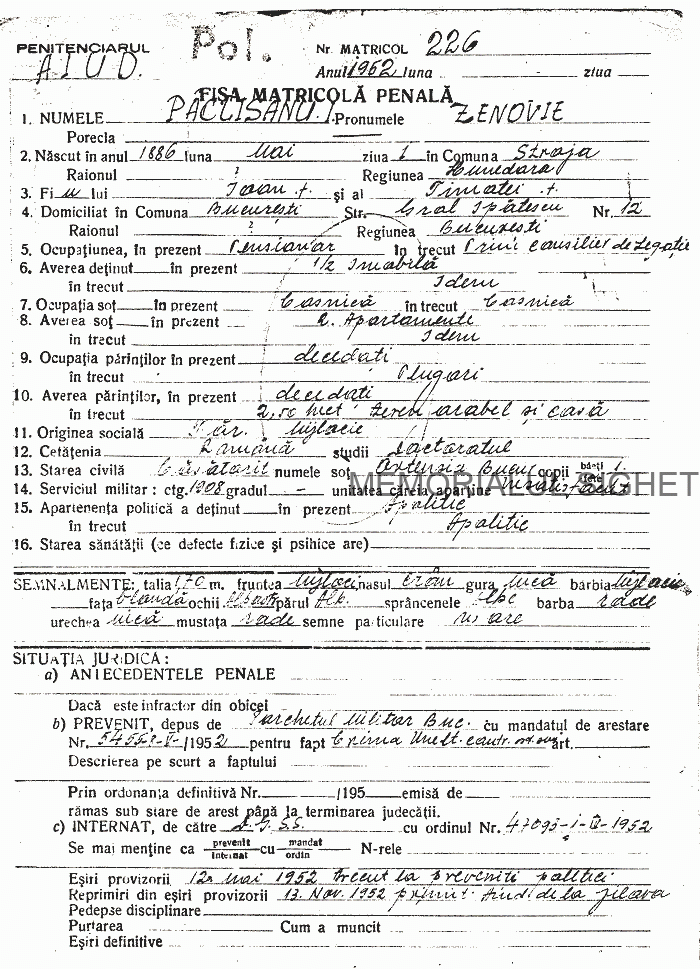 PENITENCIARUL Pol. Nr. MATRICOL 226
AIUD. Anul 1952 luna ziua
FIŞA MATRICOLĂ PENALĂ
1. NUMELE PACLISANU I. Pronumele ZENOVIE
Porecla
2. Născut în anul 1886 luna Mai ziua 1 în Comuna Straja
Raionul ? Regiunea Hunedoara
3. Fi u lui Ioan + şi al Timatei +
4. Domiciliat în Comuna Bucureşti Str. Gral Ipătescu Nr. 12
Raionul ? Regiunea Bucureşti
5. Ocupaţiunea, în prezent Pensionar în trecut Prim consilier de legaţie
6. Averea deţinut în prezent 1/2 Imobilă
în trecut Idem
7. Ocupaţia soţ în prezent Casnică în trecut Casnică
8. Averea soţ în prezent 2. Apartamente
în trecut Idem
9. Ocupaţia părinţilor în prezent decedati
în trecut Plugari
10. Averea părinţilor, în prezent decedati
în trecut 2,50 hect. teren arabel şi casă
11. Originea socială Ţăr. Mijlocie
12. Cetăţenia Română studii Doctoratul
13. Starea civilă Căsătorit numele soţ Ortensia Bucu copii băeţi fete 1.
14. Serviciul militar: ctg. 1908 gradul - unitatea căreia aparţine Nesatisfăcut
MEMORIALUL SIGHET
15. Apartenenţa politică a deţinut în prezent Apolitic
în trecut Apolitic
16. Starea sănătăţii (ce defecte fizice şi psihice are)
SEMNALMENTE: talia 1,70 m. fruntea Mijloci nasul gura mică bărbia Mijlocie
faţa blondă ochii Albaştri părul Alb. sprâncenele Albe barba rade
urechea mică mustaţa rade semne particulare nu are
SITUAŢIA JURIDICĂ:
a) ANTECEDENTELE PENALE
Dacă este infractor din obicei
b) PREVENIT, depus de Parchetul Militar Buc. cu mandatul de arestare
Nr. /1952 pentru fapt Crima Unelt. contr. art.
Descrierea pe scurt a faptului
Prin ordonanţa definitivă Nr. /195 emisă de
rămas sub stare de arest până la terminarea judecăţii.
c) INTERNAT, de către D.G.S.S. cu ordinul Nr. 47095-I-IV-1952
Se mai menţine ca prevenit internat cu mandat ordin N-rele
Eşiri provizorii 12 Mai 1952 trecut la preveniti politici
Reprimiri din eşiri provizorii 13. Nov. 1952 primit Aiud de la Jilava
Pedepse disciplinare
Purtarea Cum a muncit
Eşiri definitive